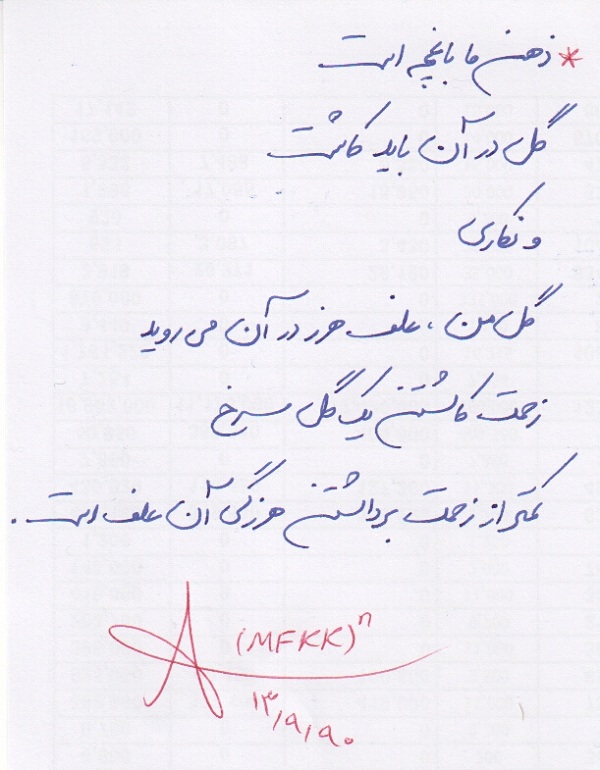 * ذهن ما باغچه است
گل در آن باید کاشت
و نکاری
گل من ، علف هرز در آن می روید
زحمت کاشتن یک گل سرخ
کمتر از زحمت برداشتن هرزگی آن علف است .
(MFKK)ⁿ
۱۳/۹/۹۰